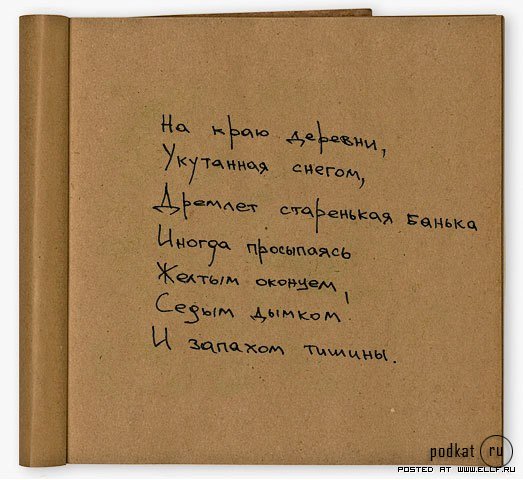 На краю деревни,
Укутанная снегом,
Дремлет старенькая банька
Иногда просыпаясь
Желтым оконцем,
Седым дымком
И запахом тишины.
podkat ru
POSTED AT WWW.ELLF.RU